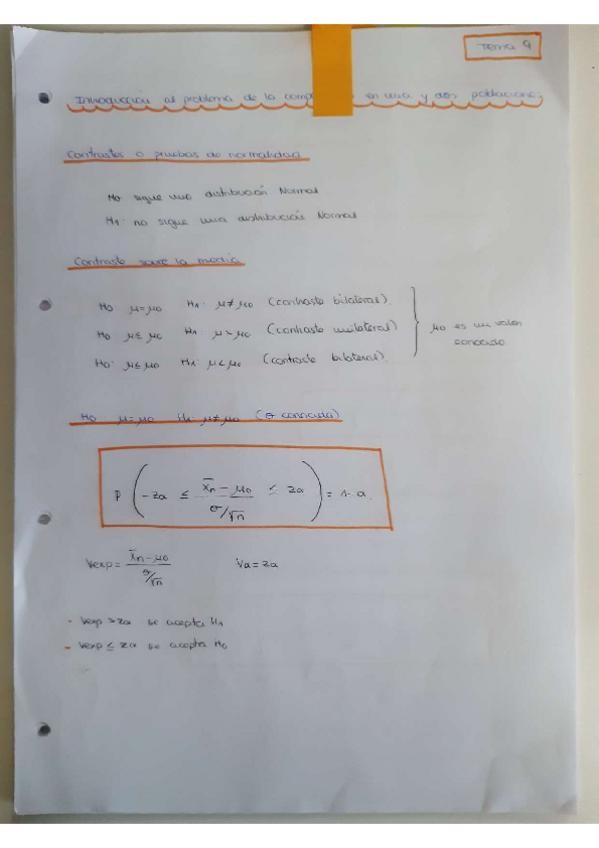 Tema 9
Introducción al problema de la comp en una y dos poblaciones
Contrastes o pruebas de normalidad
H0 sigue una distribución Normal
H1: no sigue una distribución Normal
Contraste sobre la media
H0 μ=μ0 H1: μ≠μ0 (contraste bilateral).
H0 μ≤μ0 H1: μ>μ0 (contraste unilateral)
μ0 es un valor
conocido
H0: μ≤μ0 H1: μ<μ0 (contraste bilateral).
H0 μ=μ0 H1: μ≠μ0 (σ conocida)
P(-zα ≤ (x̄n-μ0)/(σ/√n) ≤ zα) = 1-α.
Vexp = (x̄n-μ0)/(σ/√n) Vα=zα
- Vexp > zα se acepta H1
- Vexp ≤ zα se acepta H0